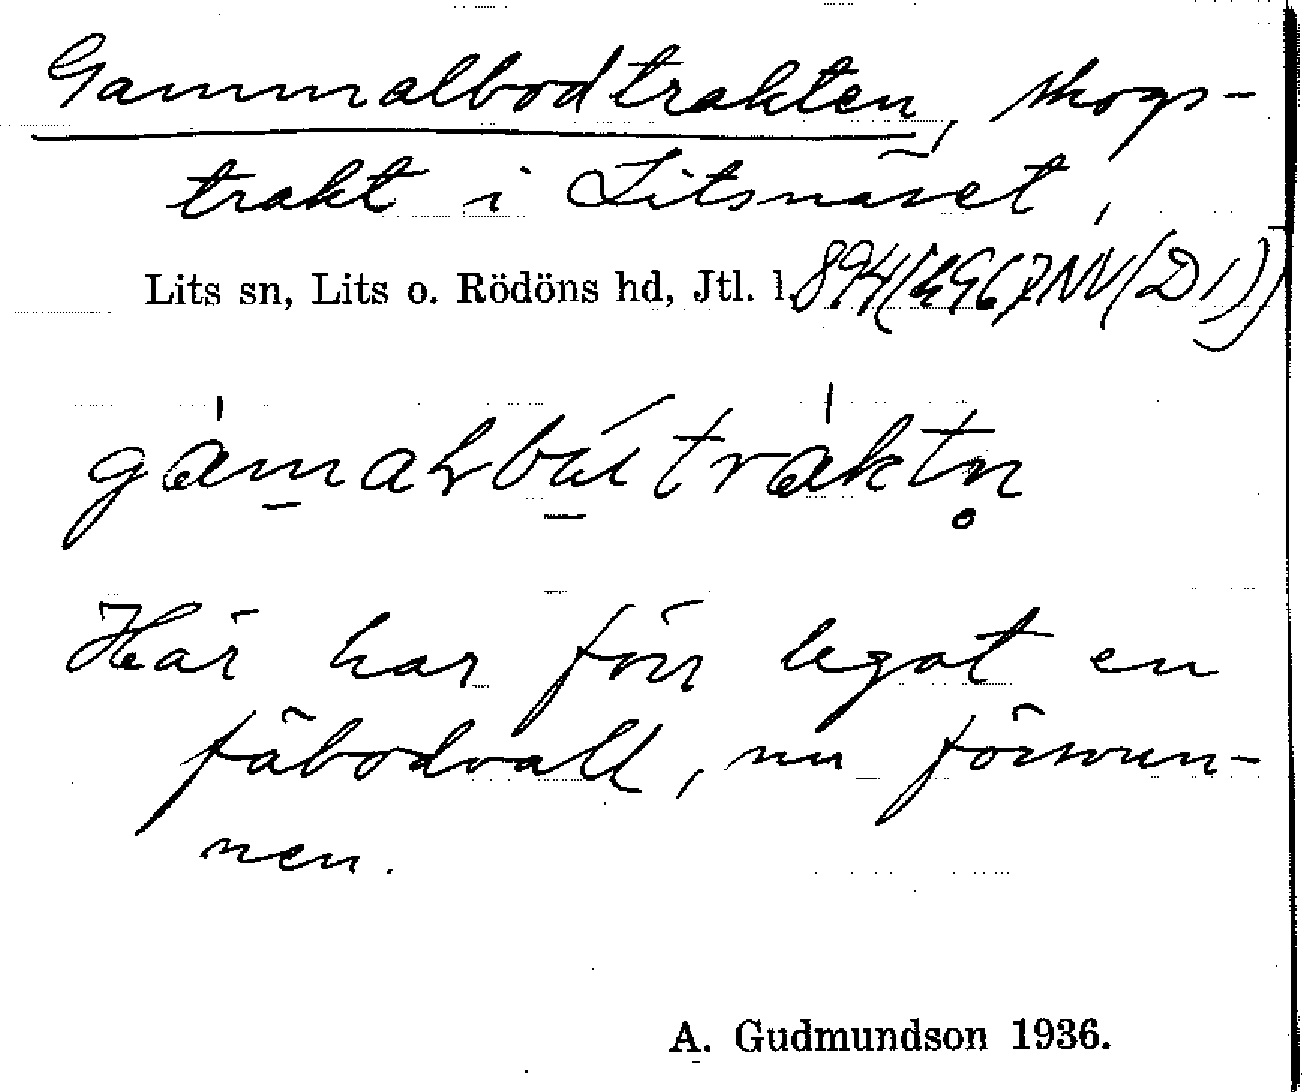 Gammalbodtrakten, skogs-
trakt i Litsnäset,
Lits sn, Lits o. Rödöns hd, Jtl. l.
Här har förr legat en
fäbodvall, nu försvun-
nen.
A. Gudmundson 1936.